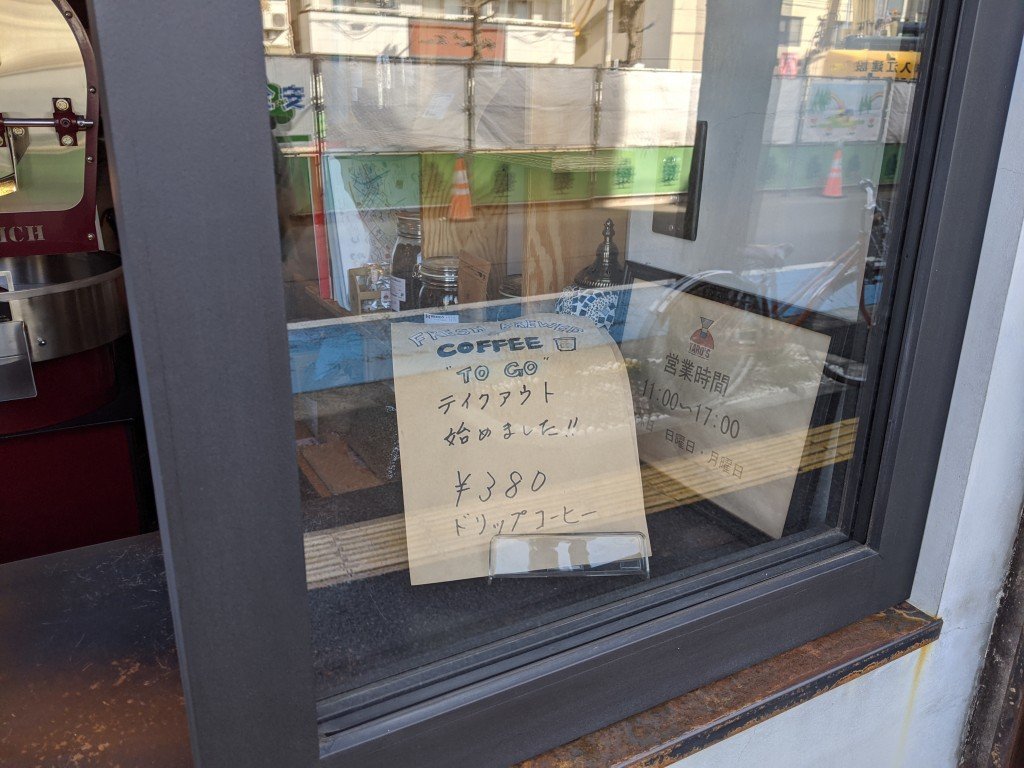 FRESH BREWED
COFFEE
"TO GO"
テイクアウト
始めました!!
¥380
ドリップコーヒー
営業時間
11:00〜17:00
日曜日・月曜日